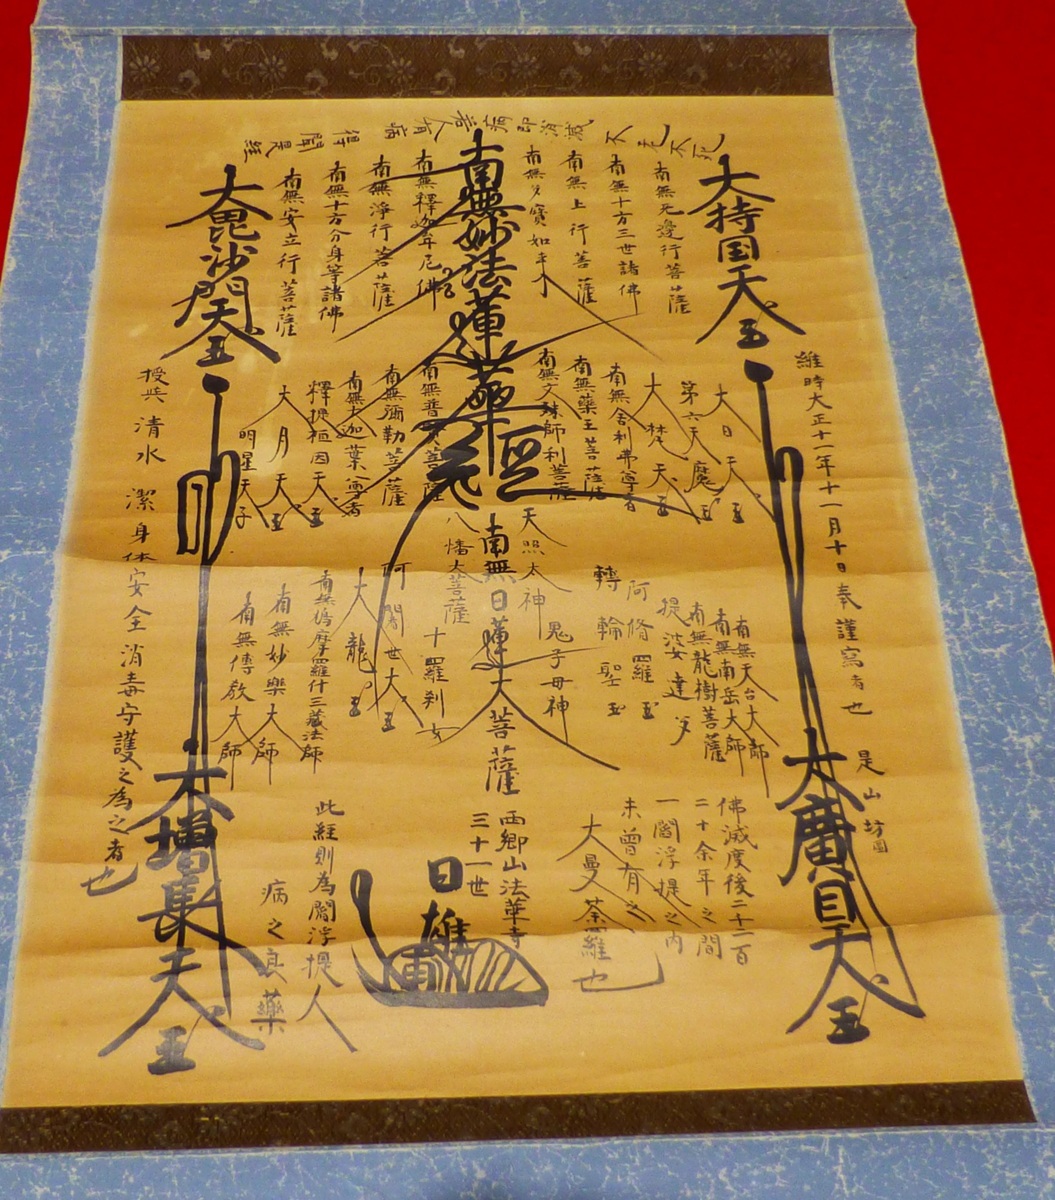 病即消滅不老不死
若人有病
得聞是経
南無妙法蓮華経
大持国天王
南無无邊行菩薩
南無十方三世諸佛
南無上行菩薩
南無多寳如来
南無釋迦牟尼佛
南無淨行菩薩
南無十方分身等諸佛
南無安立行菩薩
大毘沙門天王
維時大正十一年十一月十日奉謹寫者也
是山坊
大日天王
第六天魔王
大梵天王
南無舎利弗尊者
南無薬王菩薩
南無文殊師利菩薩
南無普賢菩薩
南無彌勒菩薩
南無大迦葉尊者
釋提桓因天王
大月天王
明星天子
授與 清水 潔身体安全消毒守護之為之者也
南無天台大師
南無南岳大師
南無龍樹菩薩
提婆達多
阿脩羅王
轉輪聖王
鬼子母神
天照太神
南無日蓮大菩薩
八幡大菩薩
十羅刹女
阿闍世大王
大龍王
南無鳩摩羅什三藏法師
南無妙樂大師
南無傳教大師
大廣目天王
佛滅度後二千二百
二十余年之間
一閻浮提之内
未曾有之
大曼荼羅也
西郷山法華寺
三十一世
日雄
此経則為閻浮提人
病之良薬
大増長天王